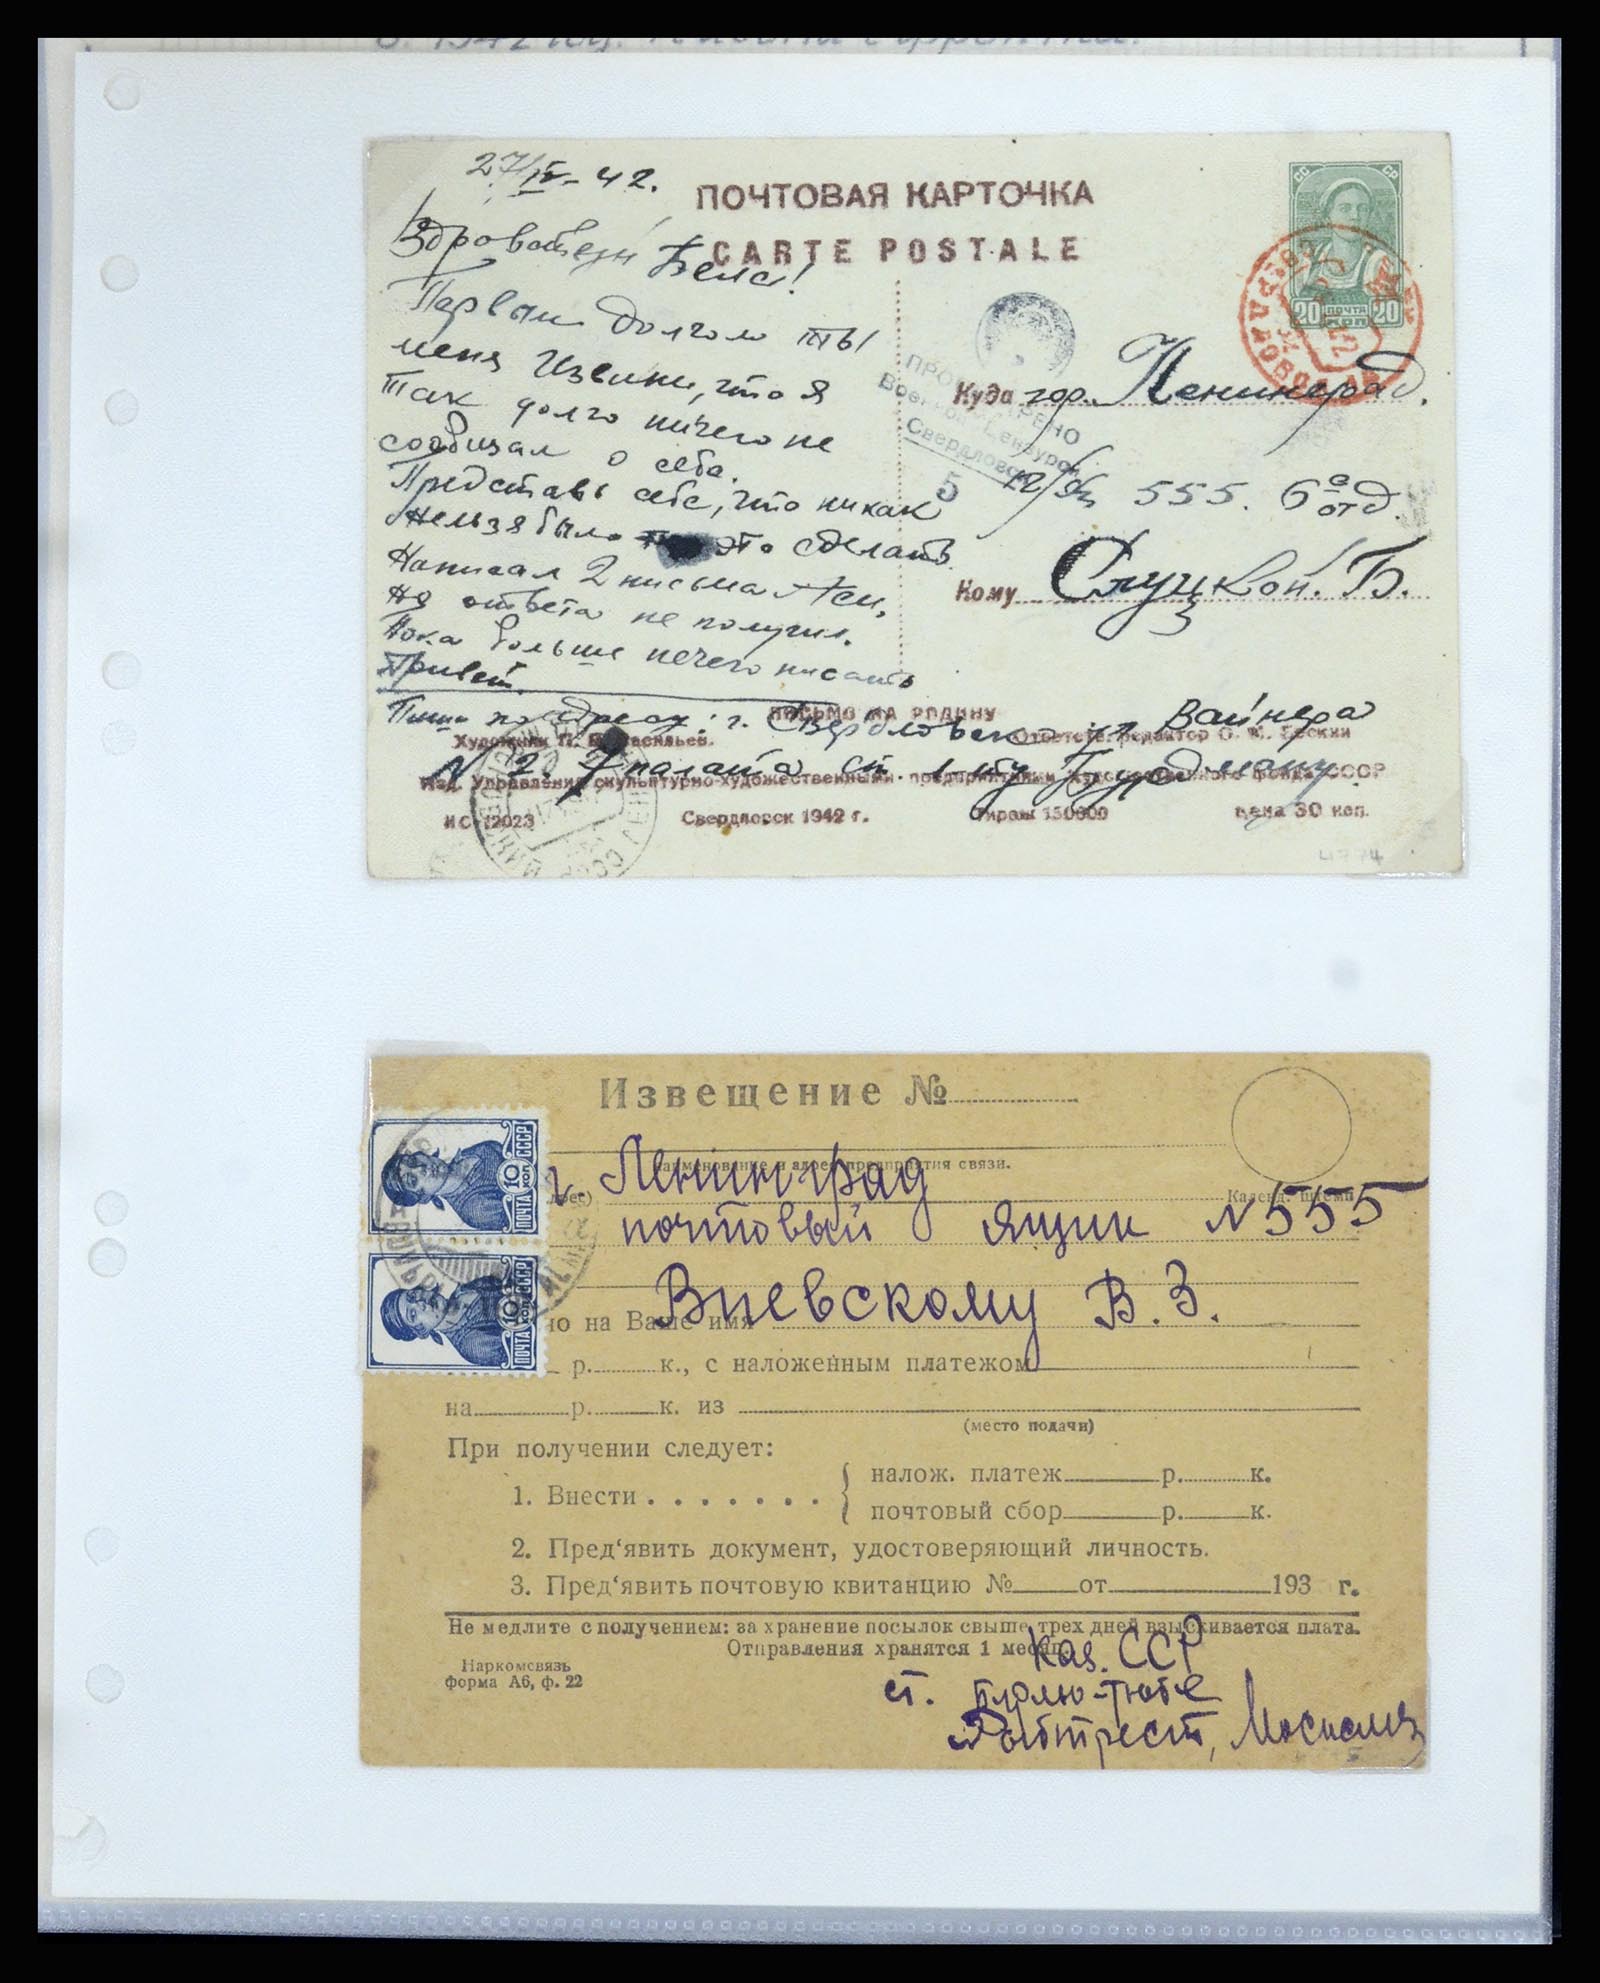 27/IV-42.
ПОЧТОВАЯ КАРТОЧКА
CARTE POSTALE
СС СР
20 ПОЧТА 20
КОП
Здравствуй Бела!
Первым долгом ты
меня извини, что я
так долго ничего не
сообщал о себе.
Представь себе, что никак
нельзя было это сделать
Написал 2 письма Аси,
но ответа не получил.
Пока больше нечего писать
Привет.
Пиши по адресу: г. Свердловск ул Вайнера
N 2. палата
Куда гор. Ленинград.
ПРОСМОТРЕНО
Военной Цензурой
Свердловск
5
п/ящ 555. 6а отд.
Кому Слуцкой. Б.
ПИСЬМО НА РОДИНУ
Художник П. Васильев.
Ответств. редактор
Изд. Управления скульптурно-художественными предприятиями Художественного фонда СССР
НС 12023
Свердловск 1942 г.
Тираж 150000
Цена 30 коп.
4774
Извещение №
Наименование и адрес предприятия связи.
Календ. штемп
г. Ленинград
почтовый ящик N 555
Виевскому В. З.
ПОЧТА 10 КОП СССР
ПОЧТА 10 КОП СССР
но на Ваше имя
р. к., с наложенным платежом
на р. к. из
(место подачи)
При получении следует:
1. Внести . . . . . . . налож. платеж р. к.
почтовый сбор р. к.
2. Пред‘явить документ, удостоверяющий личность.
3. Пред‘явить почтовую квитанцию № от 193 г.
Не медлите с получением: за хранение посылок свыше трех дней взыскивается плата.
Отправления хранятся 1 месяц.
Наркомсвязь
форма А6, ф. 22
Каз. ССР
ст. Бурлю-тюбе
Рыбтрест,